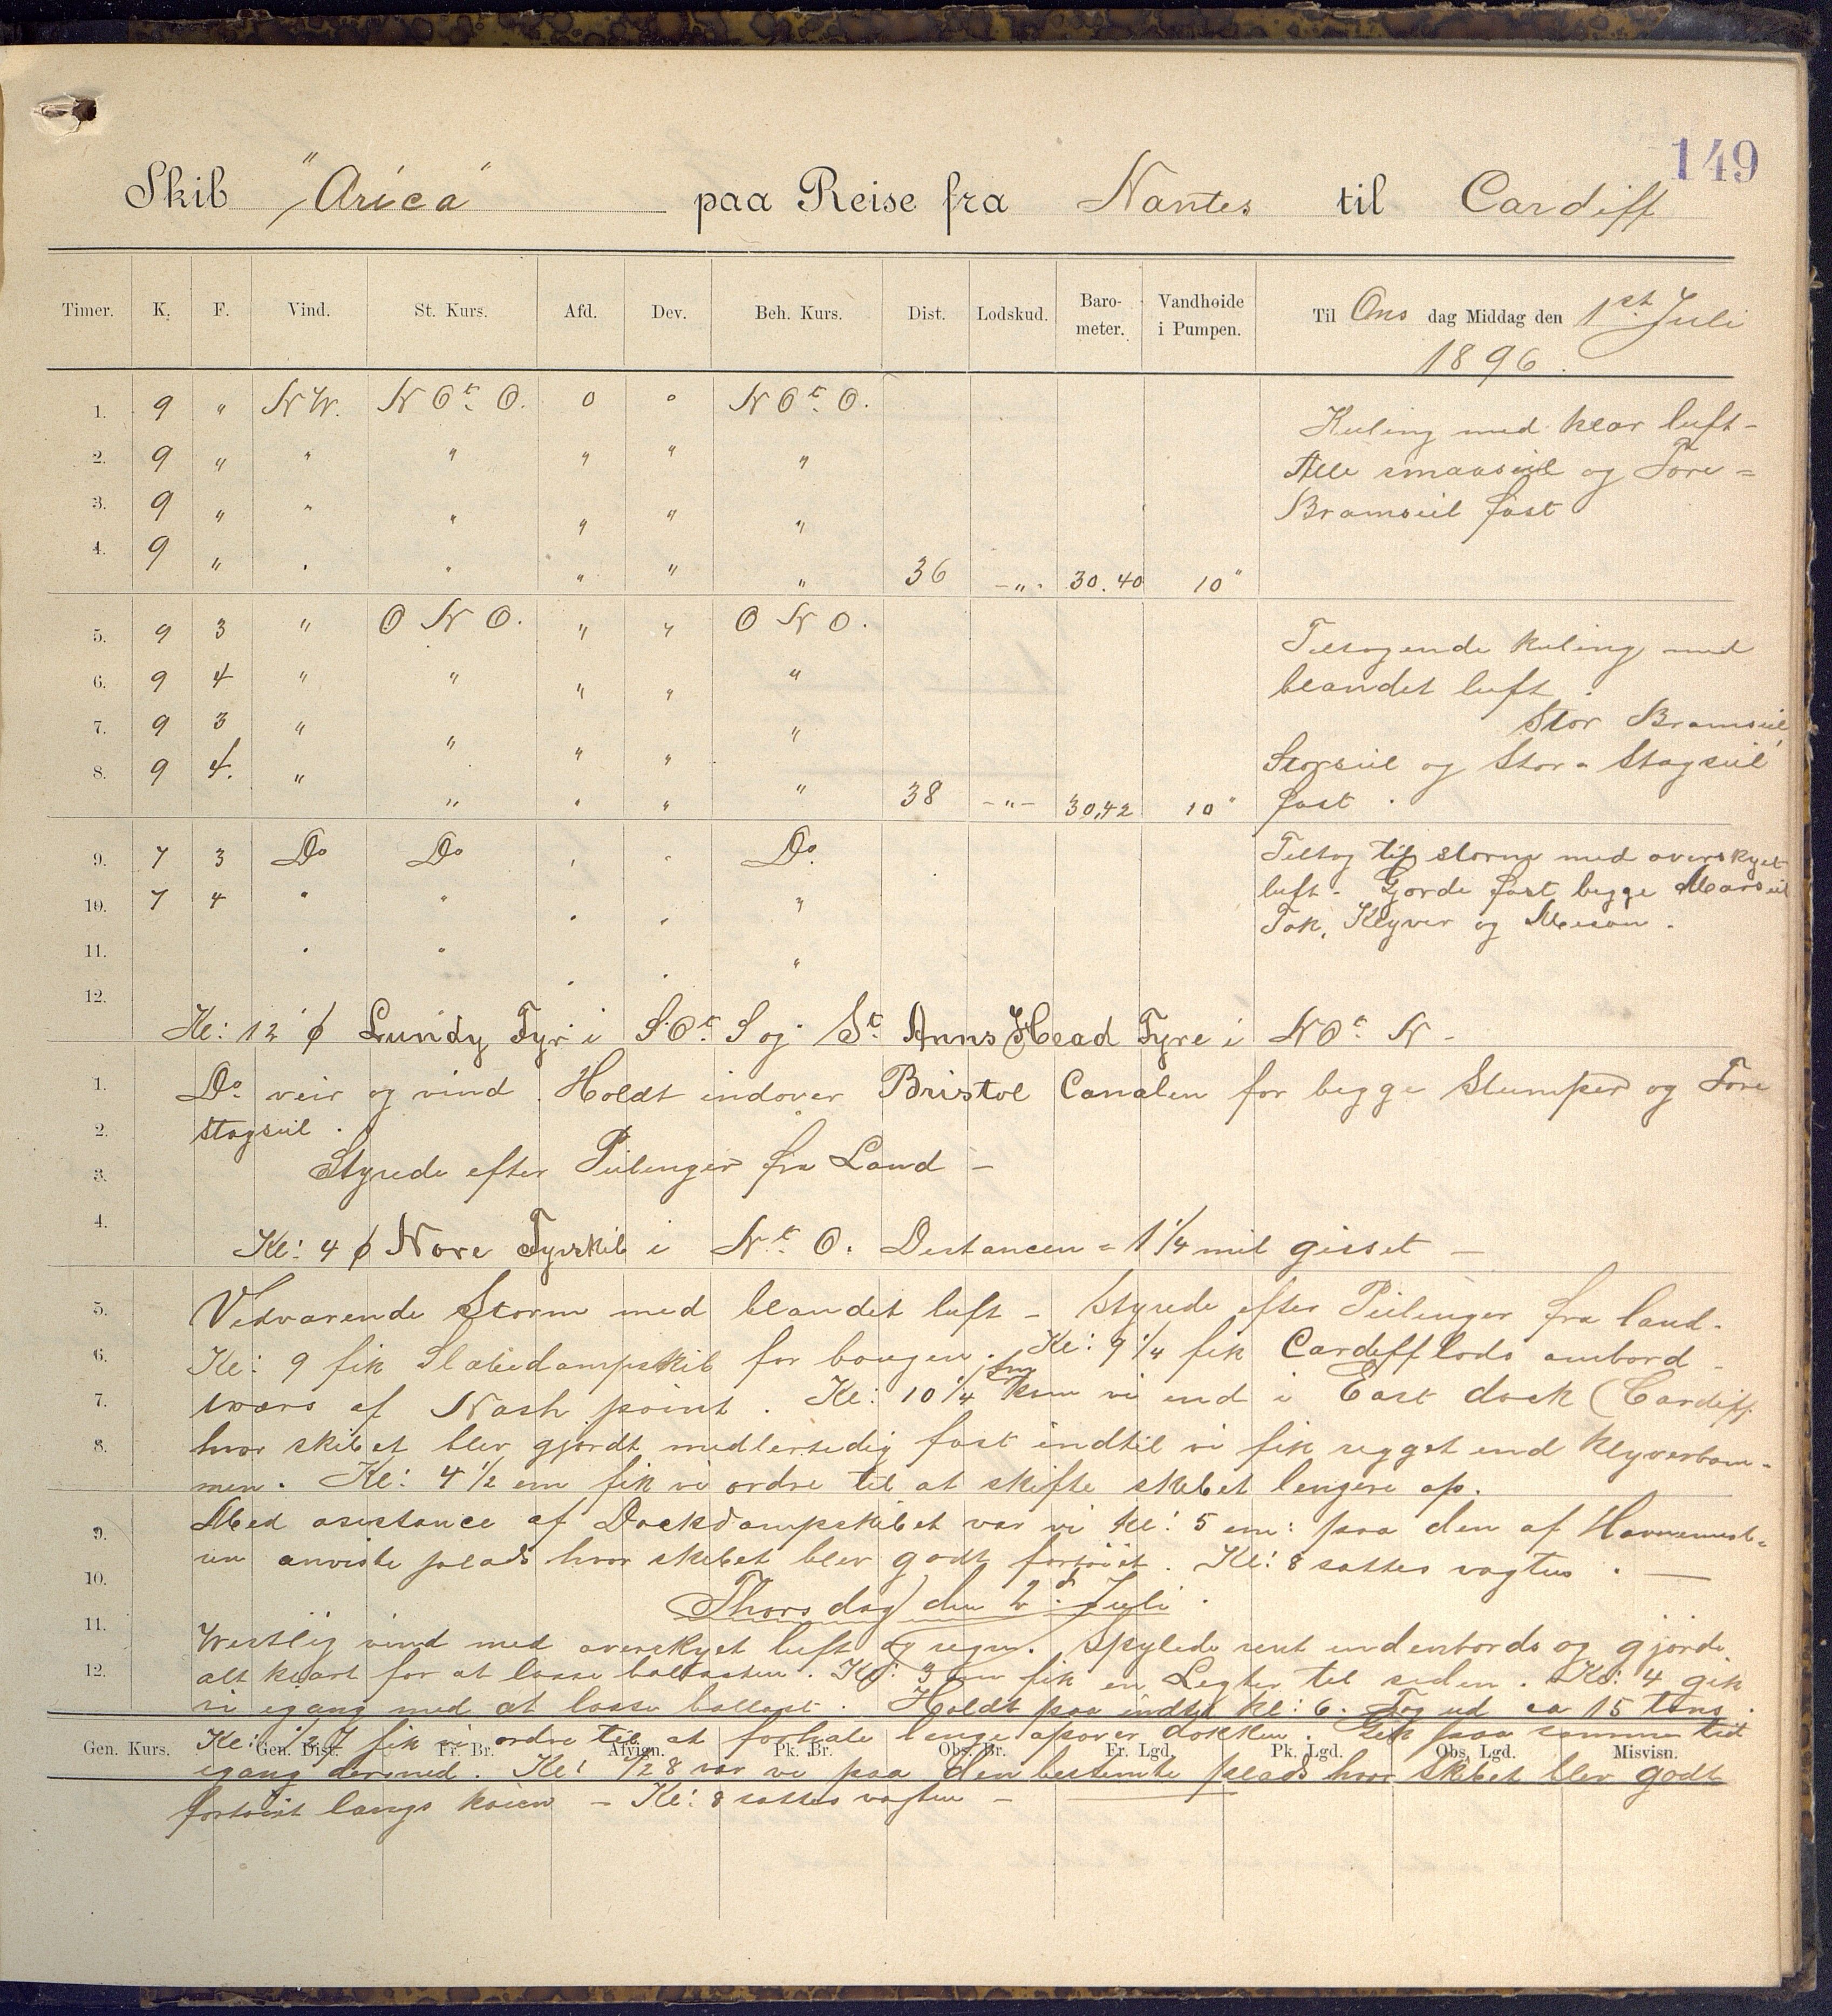 149
Skib "Arica" paa Reise fra Nantes til Cardiff
Timer. K. F. Vind. St. Kurs. Afd. Dev. Beh. Kurs. Dist. Lodskud. Baro-meter. Vandhøide i Pumpen. Til Ons dag Middag den 1st Juli
1896.
1. 9 " NW. N Ot. O. 0 0 N Ot. O.
2. 9 " " " " " "
3. 9 " " " " " "
4. 9 " " " " " " 36 -"- 30.40 10"
Kuling med klar luft -
Alle smaaseil og Fore=
Bramseil fast
5. 9 3 " O N O. " " O N O.
6. 9 4 " " " " "
7. 9 3 " " " " "
8. 9 4. " " " " " 38 -"- 30,42 10"
Tiltagende kuling med
blandet luft.
Stor Bramseil,
Storseil og Stor= Stagseil
fast.
9. 7 3 Do Do " " Do.
10. 7 4 " " " " "
11. " " " " "
12.
Tiltog til storm med overskyet
luft - Gjorde fast begge Marseil
Fok, Klyver og Mesan.
Kl: 12 ϕ Lundy Fyr i S.Ot. S og St Anns Head Fyre i N Ot N -
1. Do veir og vind. Holdt indover Bristol Canalen for begge Stumper og Fore
2. stagseil.
3. Styrede efter Peilinger fra Land -
4. Kl: 4 ϕ Nore Fyrskib i N.t O. Distancen = 1 1/4 mil gisset -
5. Vedvarende Storm med blandet luft - Styrede efter Peilinger fra land.
6. Kl: 9 fik Slæbedampskib for bougen. Kl: 9 1/4 fik Cardiff lods ombord -
7. tværs af Nash point. Kl: 10 1/4 fm kom vi ind i East dock (Cardiff
8. hvor skibet blev gjordt midlertidig fast indtil vi fik rigget ind klyverbom=
men. Kl: 4 1/2 em fik vi ordre til at skifte skibet lengere op.
9. Med asistance af Dockdampskibet var vi kl: 5 em: paa den af Havnemest=
ren anviste plads hvor skibet blev godt fortøiet. Kl: 8 sattes vagten. -
10. Thorsdag den 2d. Juli.
11. Westlig vind med overskyet luft og regn. Spylede rent indenbords og gjorde
12. alt klart for at losse ballasten. Kl: 3 em fik en Legter til siden. Kl: 4 gik
vi igang med at losse ballast. Holdt paa indtil kl: 6. Tog ud ca 15 tons.
Kl: 1/2 7 fik vi ordre til at forhale lenge opover dokken. Gik paa samme tid
Gen. Kurs. Gen. Dist. Fr. Br. Afvign. Pk. Br. Obs. Br. Fr. Lgd. Pk. Lgd. Obs. Lgd. Misvisn.
igang dermed. Kl: 1/2 8 var vi paa den bestemte plads hvor Skibet blev godt
fortøiet langs kaien - Kl: 8 sattes vagten -